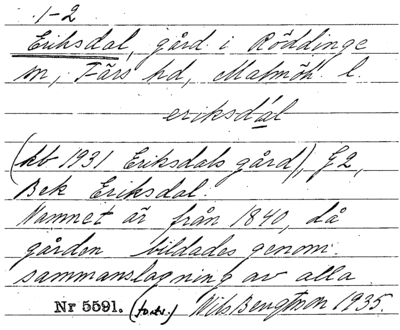 1-2
Eriksdal, gård i Röddinge
sn, Färs hd, Malmöh. l.
eriksdál
(kb 1931 Eriksdals gård), E2,
Bek Eriksdal.
Namnet är från 1840, då
gården bildades genom
sammanslagning av alla
Nr 5591. (forts.) Nils Bengtsson 1935.